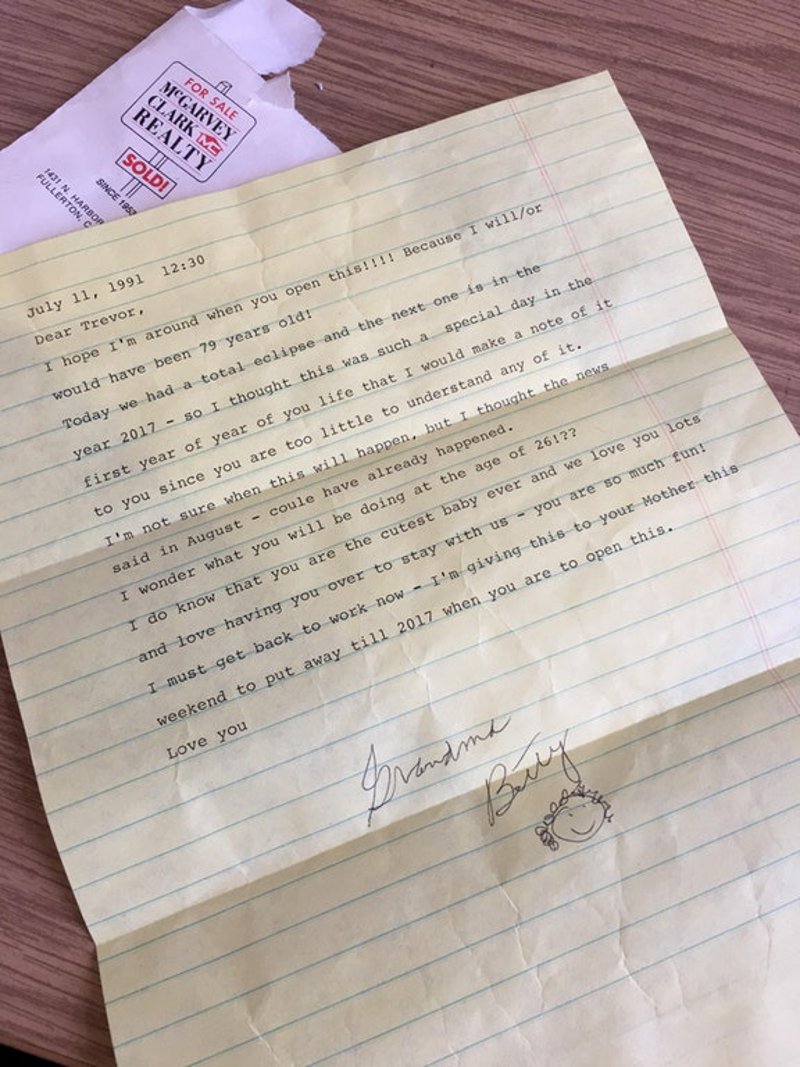 FOR SALE
McGARVEY
CLARK MC
REALTY
SOLD!
SINCE 1953
1431 N. HARBOR
FULLERTON, C
July 11, 1991 12:30
Dear Trevor,
I hope I'm around when you open this!!!! Because I will/or
would have been 79 years old!
Today we had a total eclipse and the next one is in the
year 2017 - so I thought this was such a special day in the
first year of year of you life that I would make a note of it
to you since you are too little to understand any of it.
I'm not sure when this will happen, but I thought the news
said in August - coule have already happened.
I wonder what you will be doing at the age of 26!??
I do know that you are the cutest baby ever and we love you lots
and love having you over to stay with us - you are so much fun!
I must get back to work now - I'm giving this to your Mother this
weekend to put away till 2017 when you are to open this.
Love you
Grandma
Betty